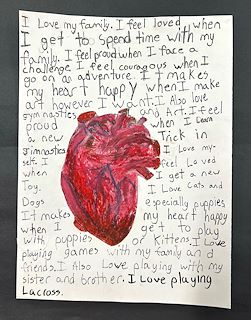 I Love my family. I feel loved when
I get to spend time with my
family. I feel proud when I face a
challenge I feel couragous when I
go on an adventure. It makes
my heart happy when I make
art however I want. I Also love
gymnastics and Art. I feel
proud when I Learn
a new Trick in
Jimnastics I Love my-
self. I feel Loved
when I get a new
Toy. I Love Cats and
Dogs especially puppies
It makes my heart happy
when I get to play
with puppies or kittens. I Love
playing games with my family and
friends. I Also Love playing with my
sister and brother. I Love playing
Lacross.